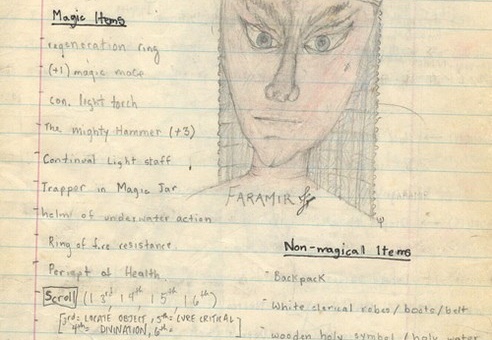 Magic Items
regeneration ring
(+1) magic mace
con. light torch
The mighty Hammer (+3)
Continual Light staff
Trapper in Magic Jar
helm of underwater action
Ring of fire resistance
Periapt of Health
Scroll (1 3rd, 1 4th, 1 5th, 1 6th)
[3rd = LOCATE OBJECT, 5th = CURE CRITICAL
4th = DIVINATION, 6th = ]
FARAMIR
Non-magical Items
Backpack
White clerical robes/boots/belt
wooden holy symbol/holy water